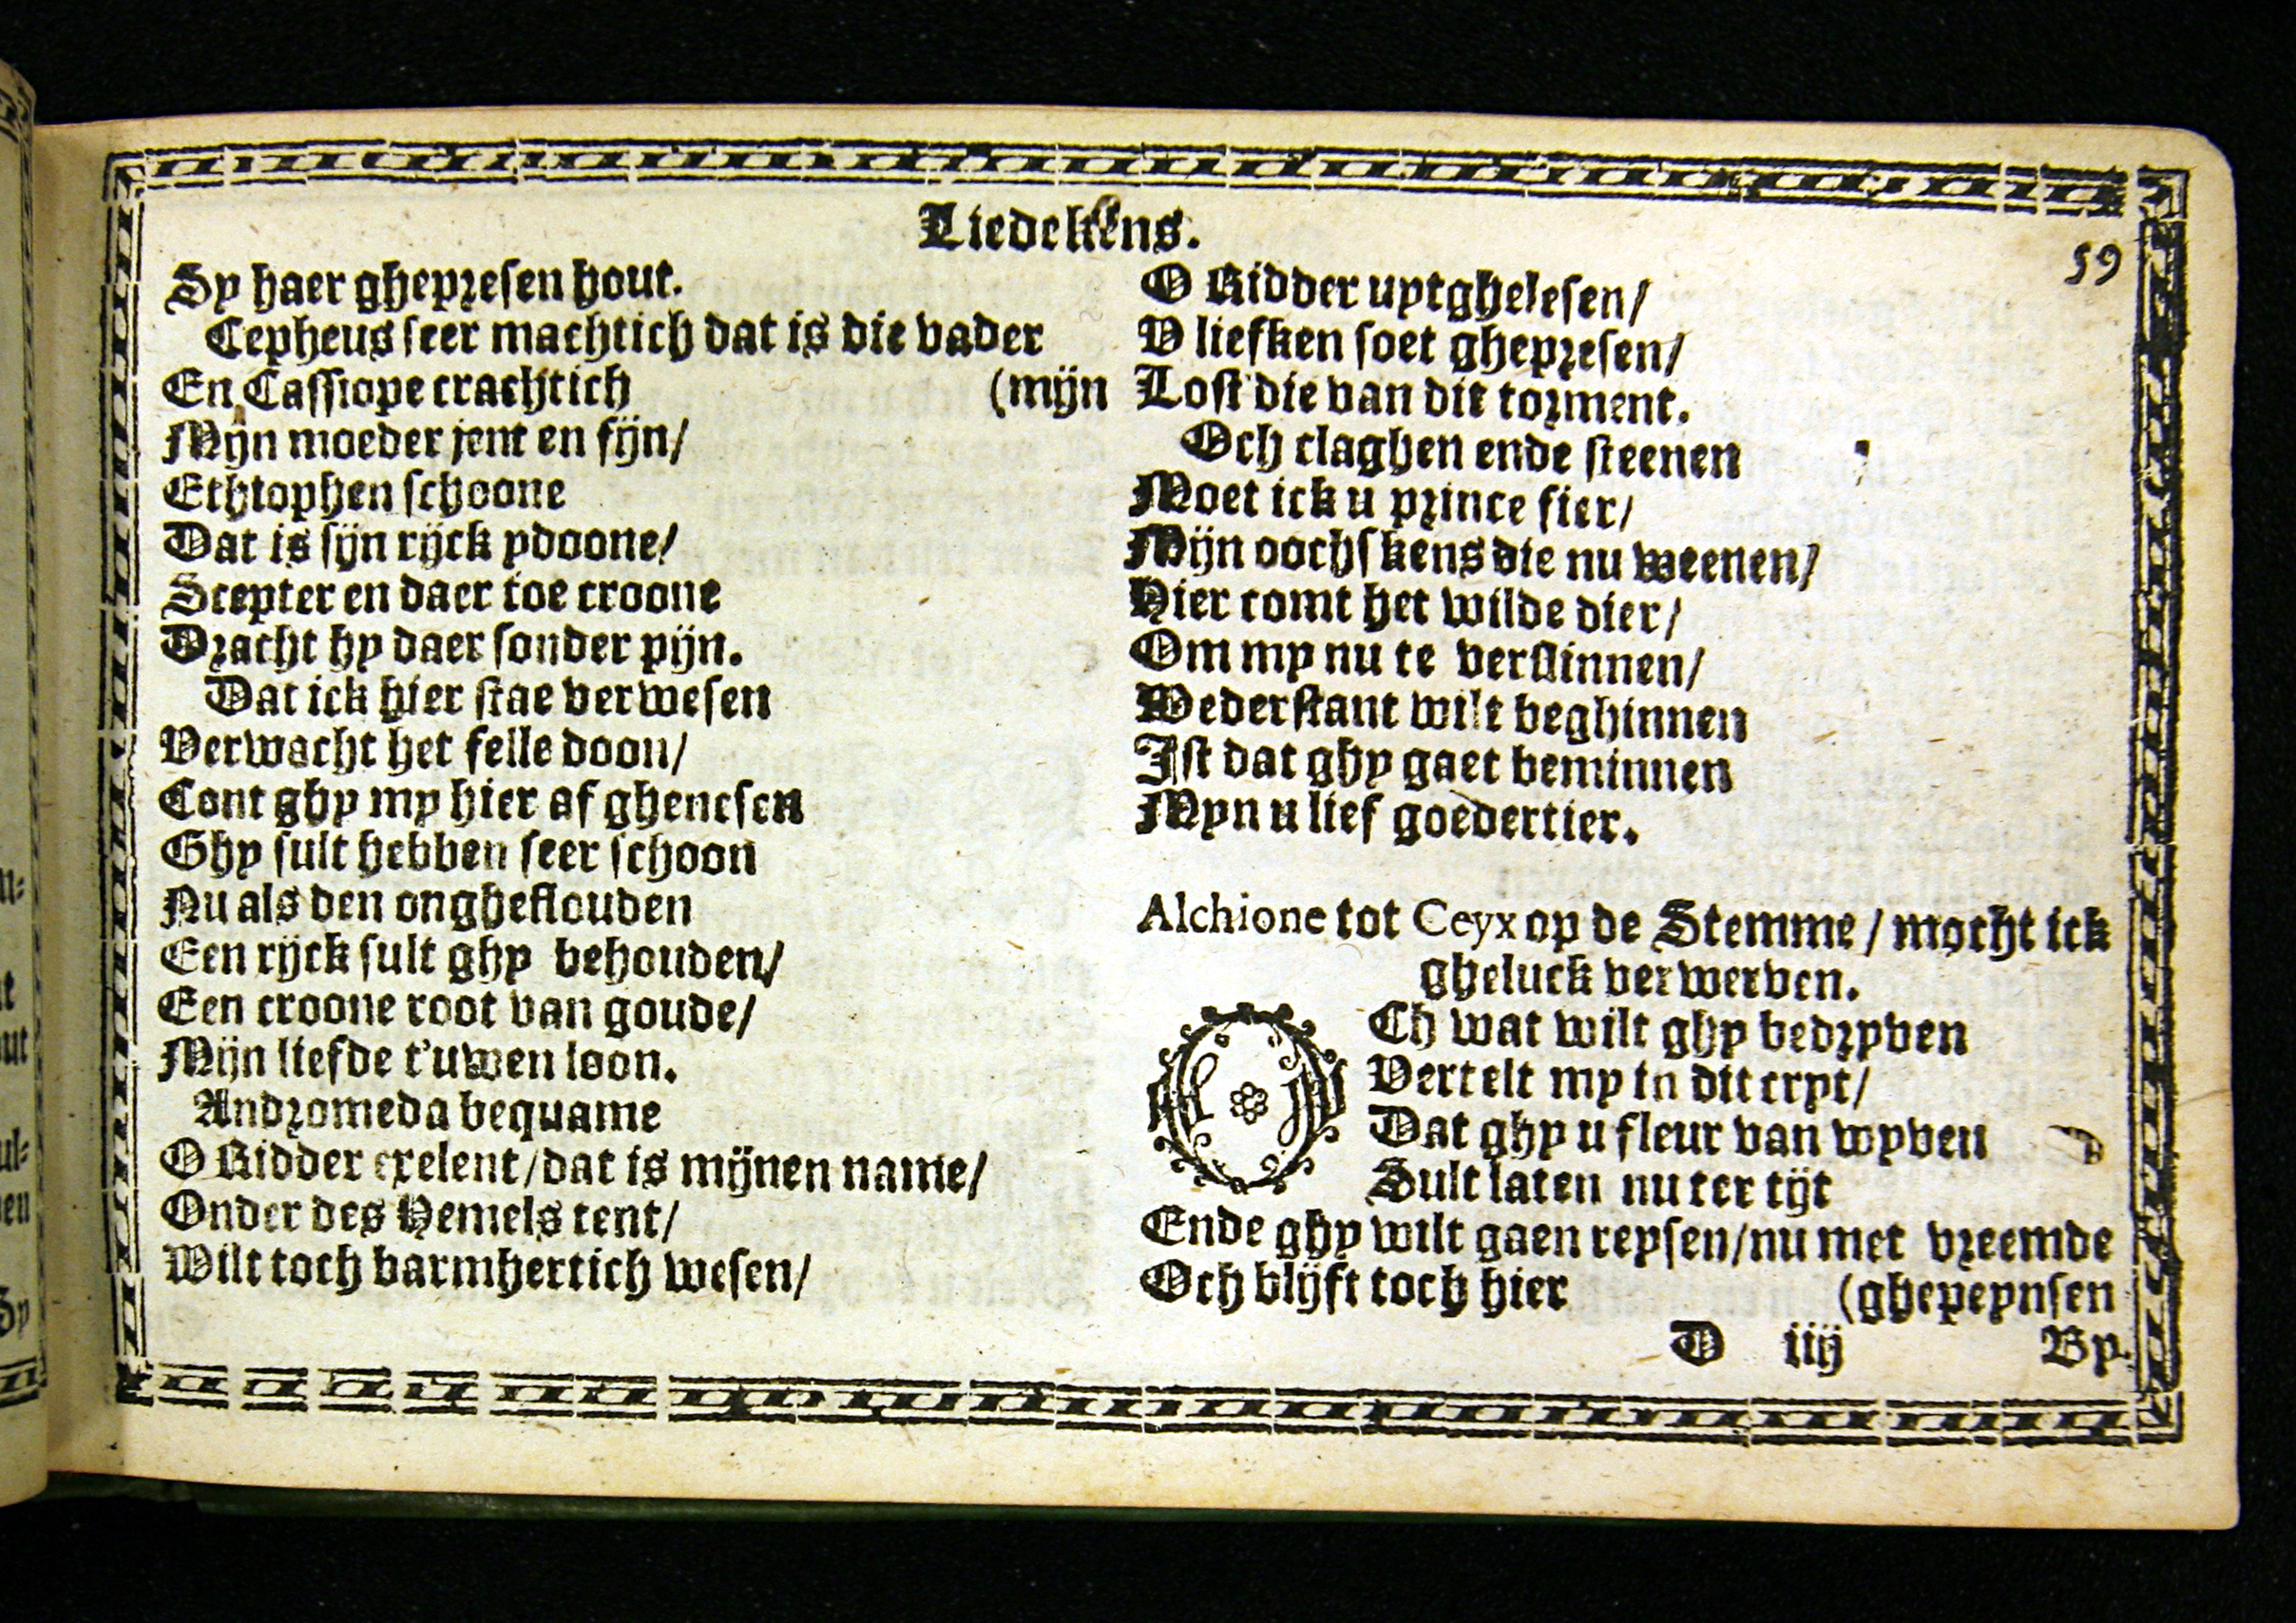 Liedekens.
59
Sy haer ghepresen hout.
Cepheus seer machtich dat is die vader
En Cassiope crachtich (mijn
Mijn moeder jent en fijn/
Ethtophen schoone
Dat is sijn rijck ydoone/
Scepter en daer toe croone
Dracht hy daer sonder pijn.
Dat ick hier stae verwesen
Verwacht het felle doon/
Cont ghy my hier af ghenesen
Ghy sult hebben seer schoon
Nu als den ongheflouden
Een rijck sult ghy behouden/
Een croone root van goude/
Mijn liefde t'uwen loon.
Andromeda bequame
O Ridder exelent/dat is mijnen name/
Onder des Hemels tent/
Wilt toch barmhertich wesen/
O Ridder uytghelesen/
V liefken soet ghepresen/
Lost die van dit torment.
Och claghen ende steenen
Moet ick u prince fier/
Mijn oochskens die nu weenen/
Hier comt het wilde dier/
Om my nu te verslinnen/
Wederstant wilt beghinnen
Ist dat ghy gaet beminnen
Myn u lief goedertier.
Alchione tot Ceyx op de Stemme/mocht ick
gheluck verwerven.
OCh wat wilt ghy bedryven
Vertelt my in dit cryt/
Dat ghy u fleur van wyven
Sult laten nu ter tijt
Ende ghy wilt gaen reysen/nu met vreemde
Och blijft toch hier (ghepeynsen
D iiij By